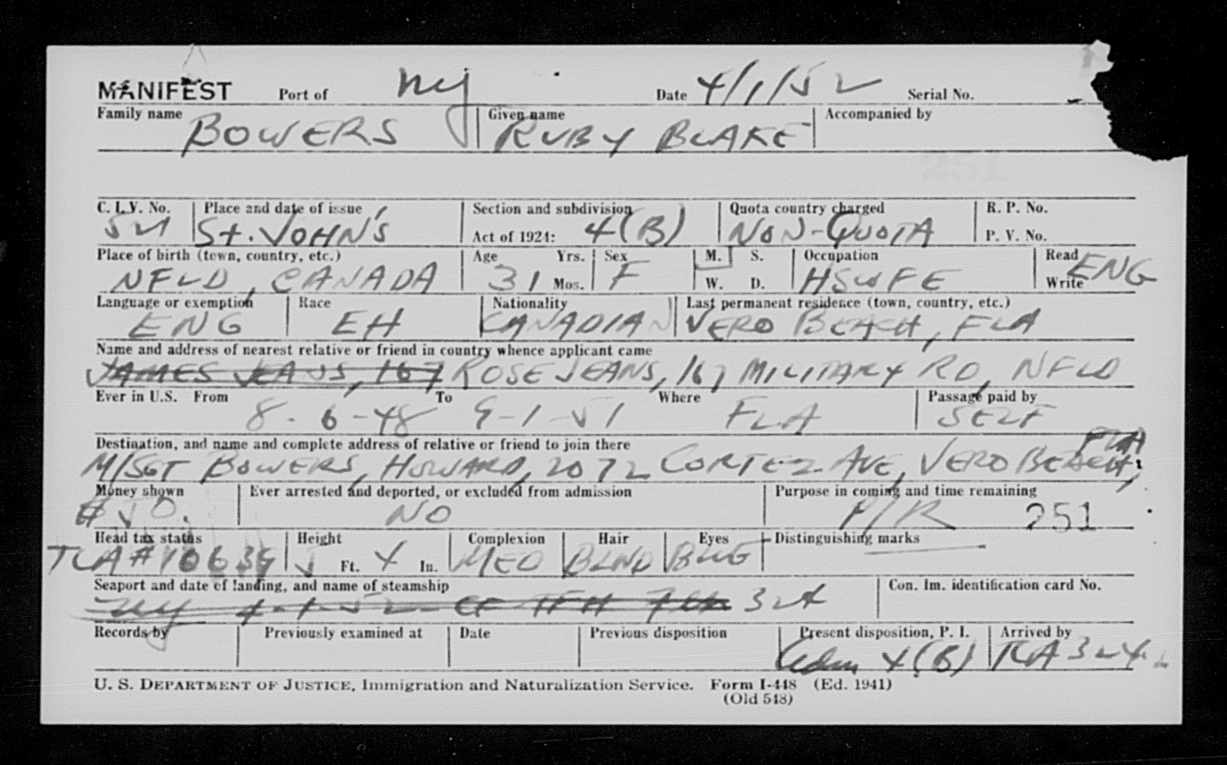 MANIFEST Port of NY Date 4/1/52 Serial No.
Family name BOWERS Given name RUBY BLAKE Accompanied by
251
C. I. V. No. Place and date of issue Section and subdivision Quota country charged R. P. No.
521 St. JOHN'S Act of 1924: 4(B) NON-QUOTA P. V. No.
Place of birth (town, country, etc.) Age Yrs. Sex M. S. Occupation Read
NFLD, CANADA 31 Mos. F W. D. HSWFE Write ENG
Language or exemption Race Nationality Last permanent residence (town, country, etc.)
ENG EH CANADIAN VERO BEACH, FLA
Name and address of nearest relative or friend in country whence applicant came
JAMES JEANS, 167 ROSE JEANS, 167 MILITARY RD, NFLD
Ever in U.S. From To Where Passage paid by
8-6-48 9-1-51 FLA SELF
Destination, and name and complete address of relative or friend to join there
M/SGT BOWERS, HOWARD, 2072 CORTEZ AVE, VERO BEACH, FLA
Money shown Ever arrested and deported, or excluded from admission Purpose in coming and time remaining
NO P/R 251
Head tax status Height Complexion Hair Eyes Distinguishing marks
TCA# 10639 5 Ft. 4 In. MED BLND
Seaport and date of landing, and name of steamship Con. Im. identification card No.
NY 4-1-52 324
Records by Previously examined at Date Previous disposition Present disposition, P. I. Arrived by
Adm 4(B) TCA 324
U. S. DEPARTMENT OF JUSTICE, Immigration and Naturalization Service. Form I-448 (Ed. 1941)
(Old 548)